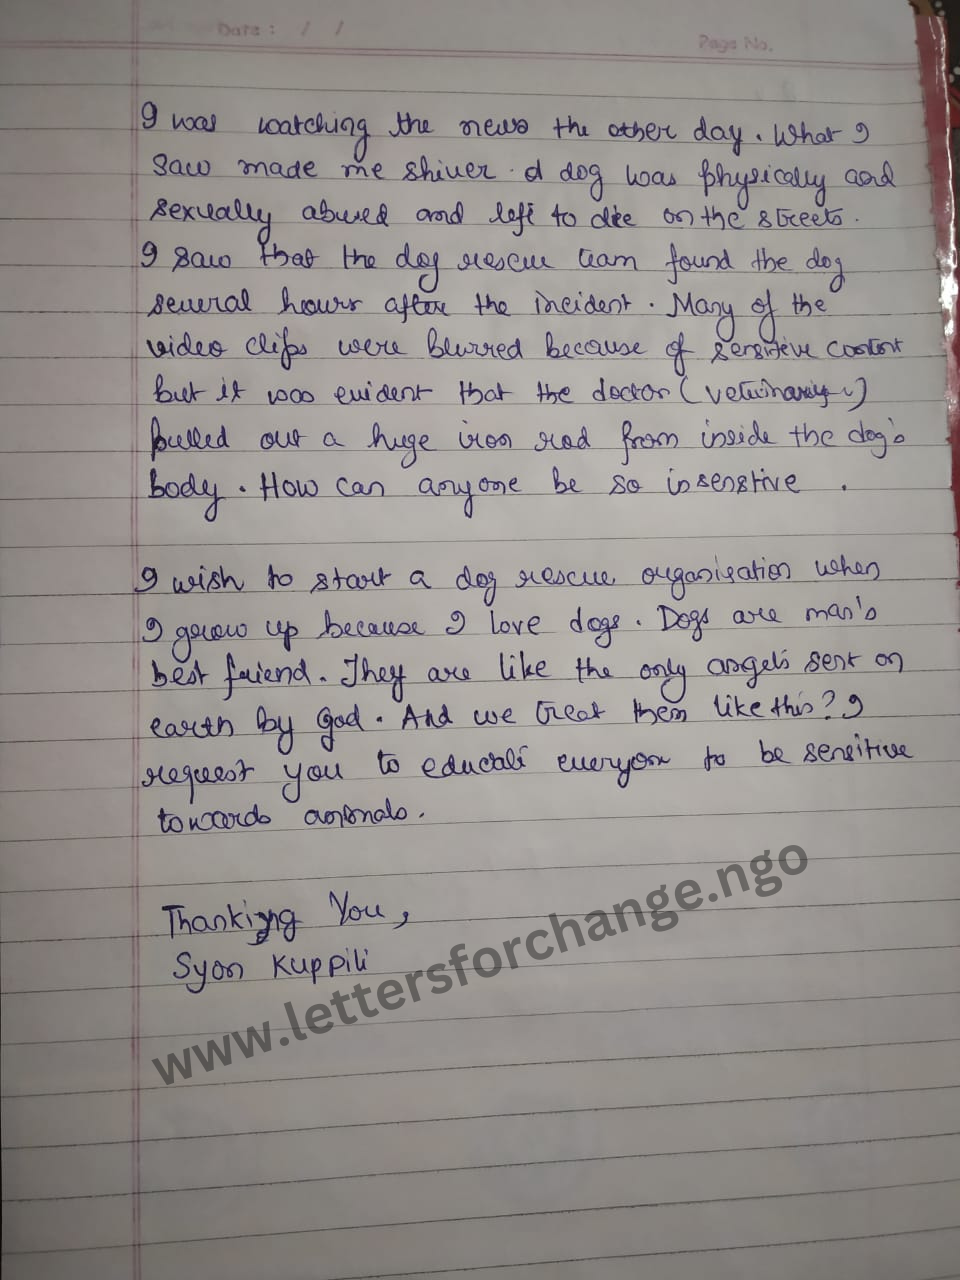 Date : / /
Page No.
I was watching the news the other day. What I
saw made me shiver. A dog was physically and
sexually abused and left to die on the streets.
I saw that the dog rescue team found the dog
several hours after the incident. Many of the
video clips were blurred because of sensitive content
but it was evident that the doctor (veterinary)
pulled out a huge iron rod from inside the dog's
body. How can anyone be so insenstive .
I wish to start a dog rescue organisation when
I grow up because I love dogs. Dogs are man's
best friend. They are like the only angels sent on
earth by God. And we treat them like this? I
request you to educate everyone to be sensitive
towards animals.
Thanking You,
Syon Kuppili
www.lettersforchange.ngo